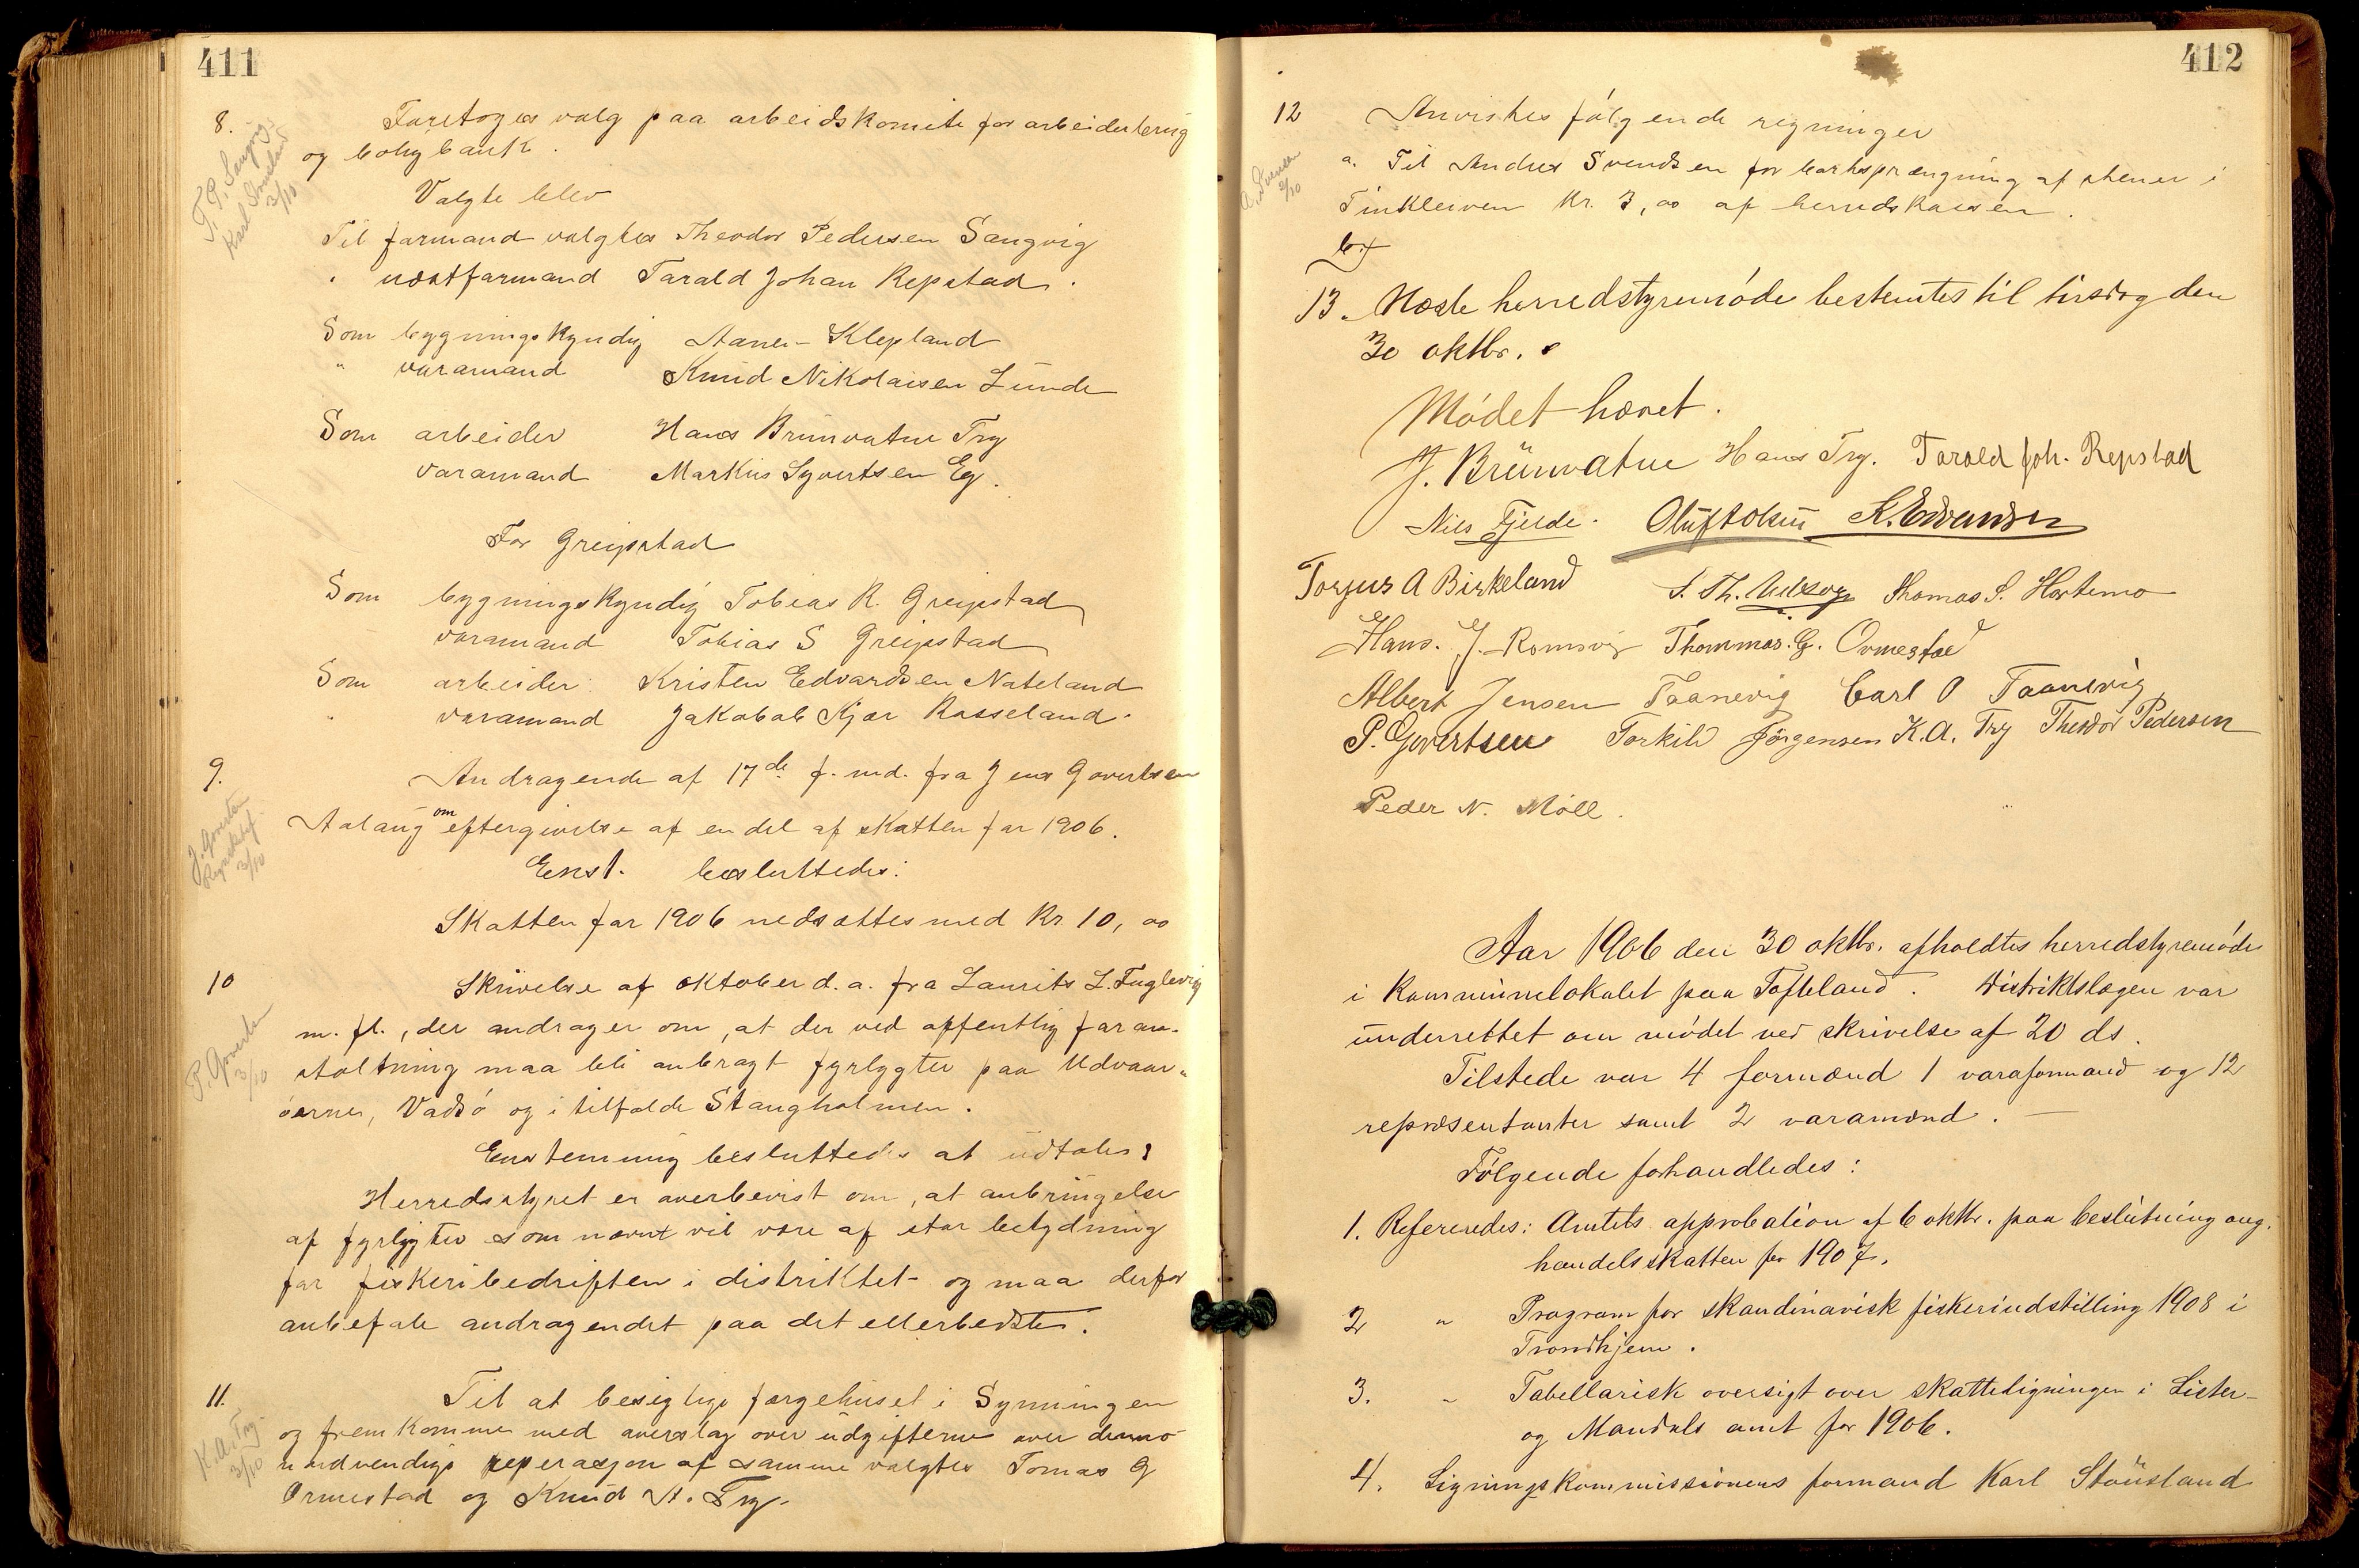 411
8. Foretoges valg paa arbeidskomite for arbeiderbrug
og boligbank.
Valgte blev
Til formand valgtes Theodor Pedersen Sangvig
" næstformand Tarald Johan Repstad.
Som bygningskyndig Aanen Klepland
" varamand Knud Nikolaisen Lunde
Som arbeider Hans Brunvatne Try
varamand Markus Syvertsen Eg.
For Greipstad
Som bygningskyndig Tobias R. Greipstad
varamand Tobias S Greipstad
Som arbeider: Kristen Edvardsen Nateland
" varamand Jakobab Kjær Rosseland.
9. Andragende af 17de f. md. fra Jens Govertsen
Aalaug om eftergivelse af en del af skatten for 1906.
Enst. besluttedes:
Skatten for 1906 nedsættes med Kr 10, oo
10 Skrivelse af oktober d. a. fra Laurits L. Fuglevig
m. fl., der andrager om, at der ved offentlig foran-
staltning maa bli anbragt fyrlygter paa Udvaar-
øerne, Vadsø og i tilfælde Stangholmen.
Enstemmig besluttedes at udtales:
Herredsstyret er overbevist om, at anbringelse
af fyrlygter som nævnt vil være af stor betydning
for fiskeribedriften i distriktet og maa derfor
anbefale andragendet paa det allerbedste.
11. Til at besigtige færgehuset i Symningen
og fremkomme med overslag over udgifterne over
nødvendige reperasjon af samme valgtes Tomas G
Ormestad og Knud A. Try.
T. P. Sangvig
Karl
3/10
J. Govertsen
3/10
P. Govertsen
3/10
K. A. Try
3/10
412
12 Anvistes følgende regninger
a. Til Andres Svendsen for bortsprængning af stener i
Tinkleiven Kr. 3, oo af herredskassen.
b.
13. Næste herredstyremøde bestemtes til tirsdag den
30 oktbr.
Mødet hævet.
J. Brünvatne Hans Try. Tarald Joh. Repstad
Nils Fjelde. Oluf Olsen K. Edvardsen
Torjus A Birkeland S. Th. Thomas S. Hortemo
Hans. J. Romsvig Thommas. G. Ormestad
Albert Jensen Taanevig Carl O Taanevig
P. Govertsen Torkild Jörgensen K. A. Try Theodor Pedersen
Peder N. Möll.
A. Svensen
2/10
Aar 1906 den 30 oktbr. afholdtes herredstyremøde
i Kommunelokalet paa Tofteland. Distriktslægen var
underrettet om mødet ved skrivelse af 20 ds.
Tilstede var 4 formænd 1 varaformand og 12
repræsentanter samt 2 varamænd. —
Følgende forhandledes:
1. Refereredes: Amtets approbation af 6 oktbr. paa beslutning ang.
handelsskatten for 1907.
2 " Program for skandinavisk fiskeriudstilling 1908 i
Trondhjem.
3. " Tabellarisk oversigt over skatteligningen i Lister-
og Mandals amt for 1906.
4. Ligningskommissionens formand Karl Stöusland